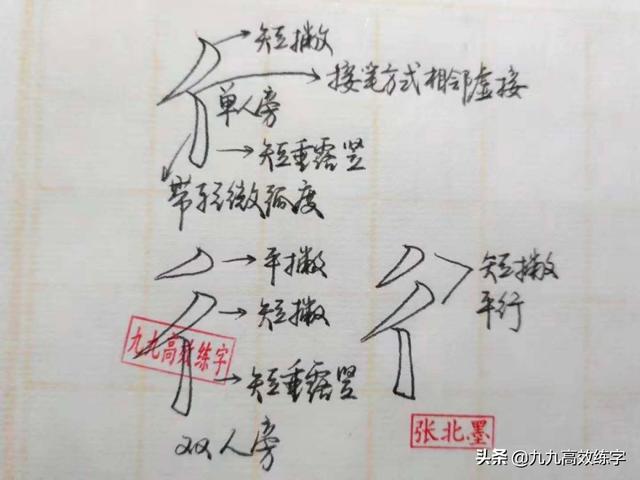 短撇
接笔方式相邻虚接
单人旁
短垂露竖
带轻微弧度
平撇
短撇
短撇
平行
九九高效练字
短垂露竖
双人旁
张北墨
头条 @九九高效练字